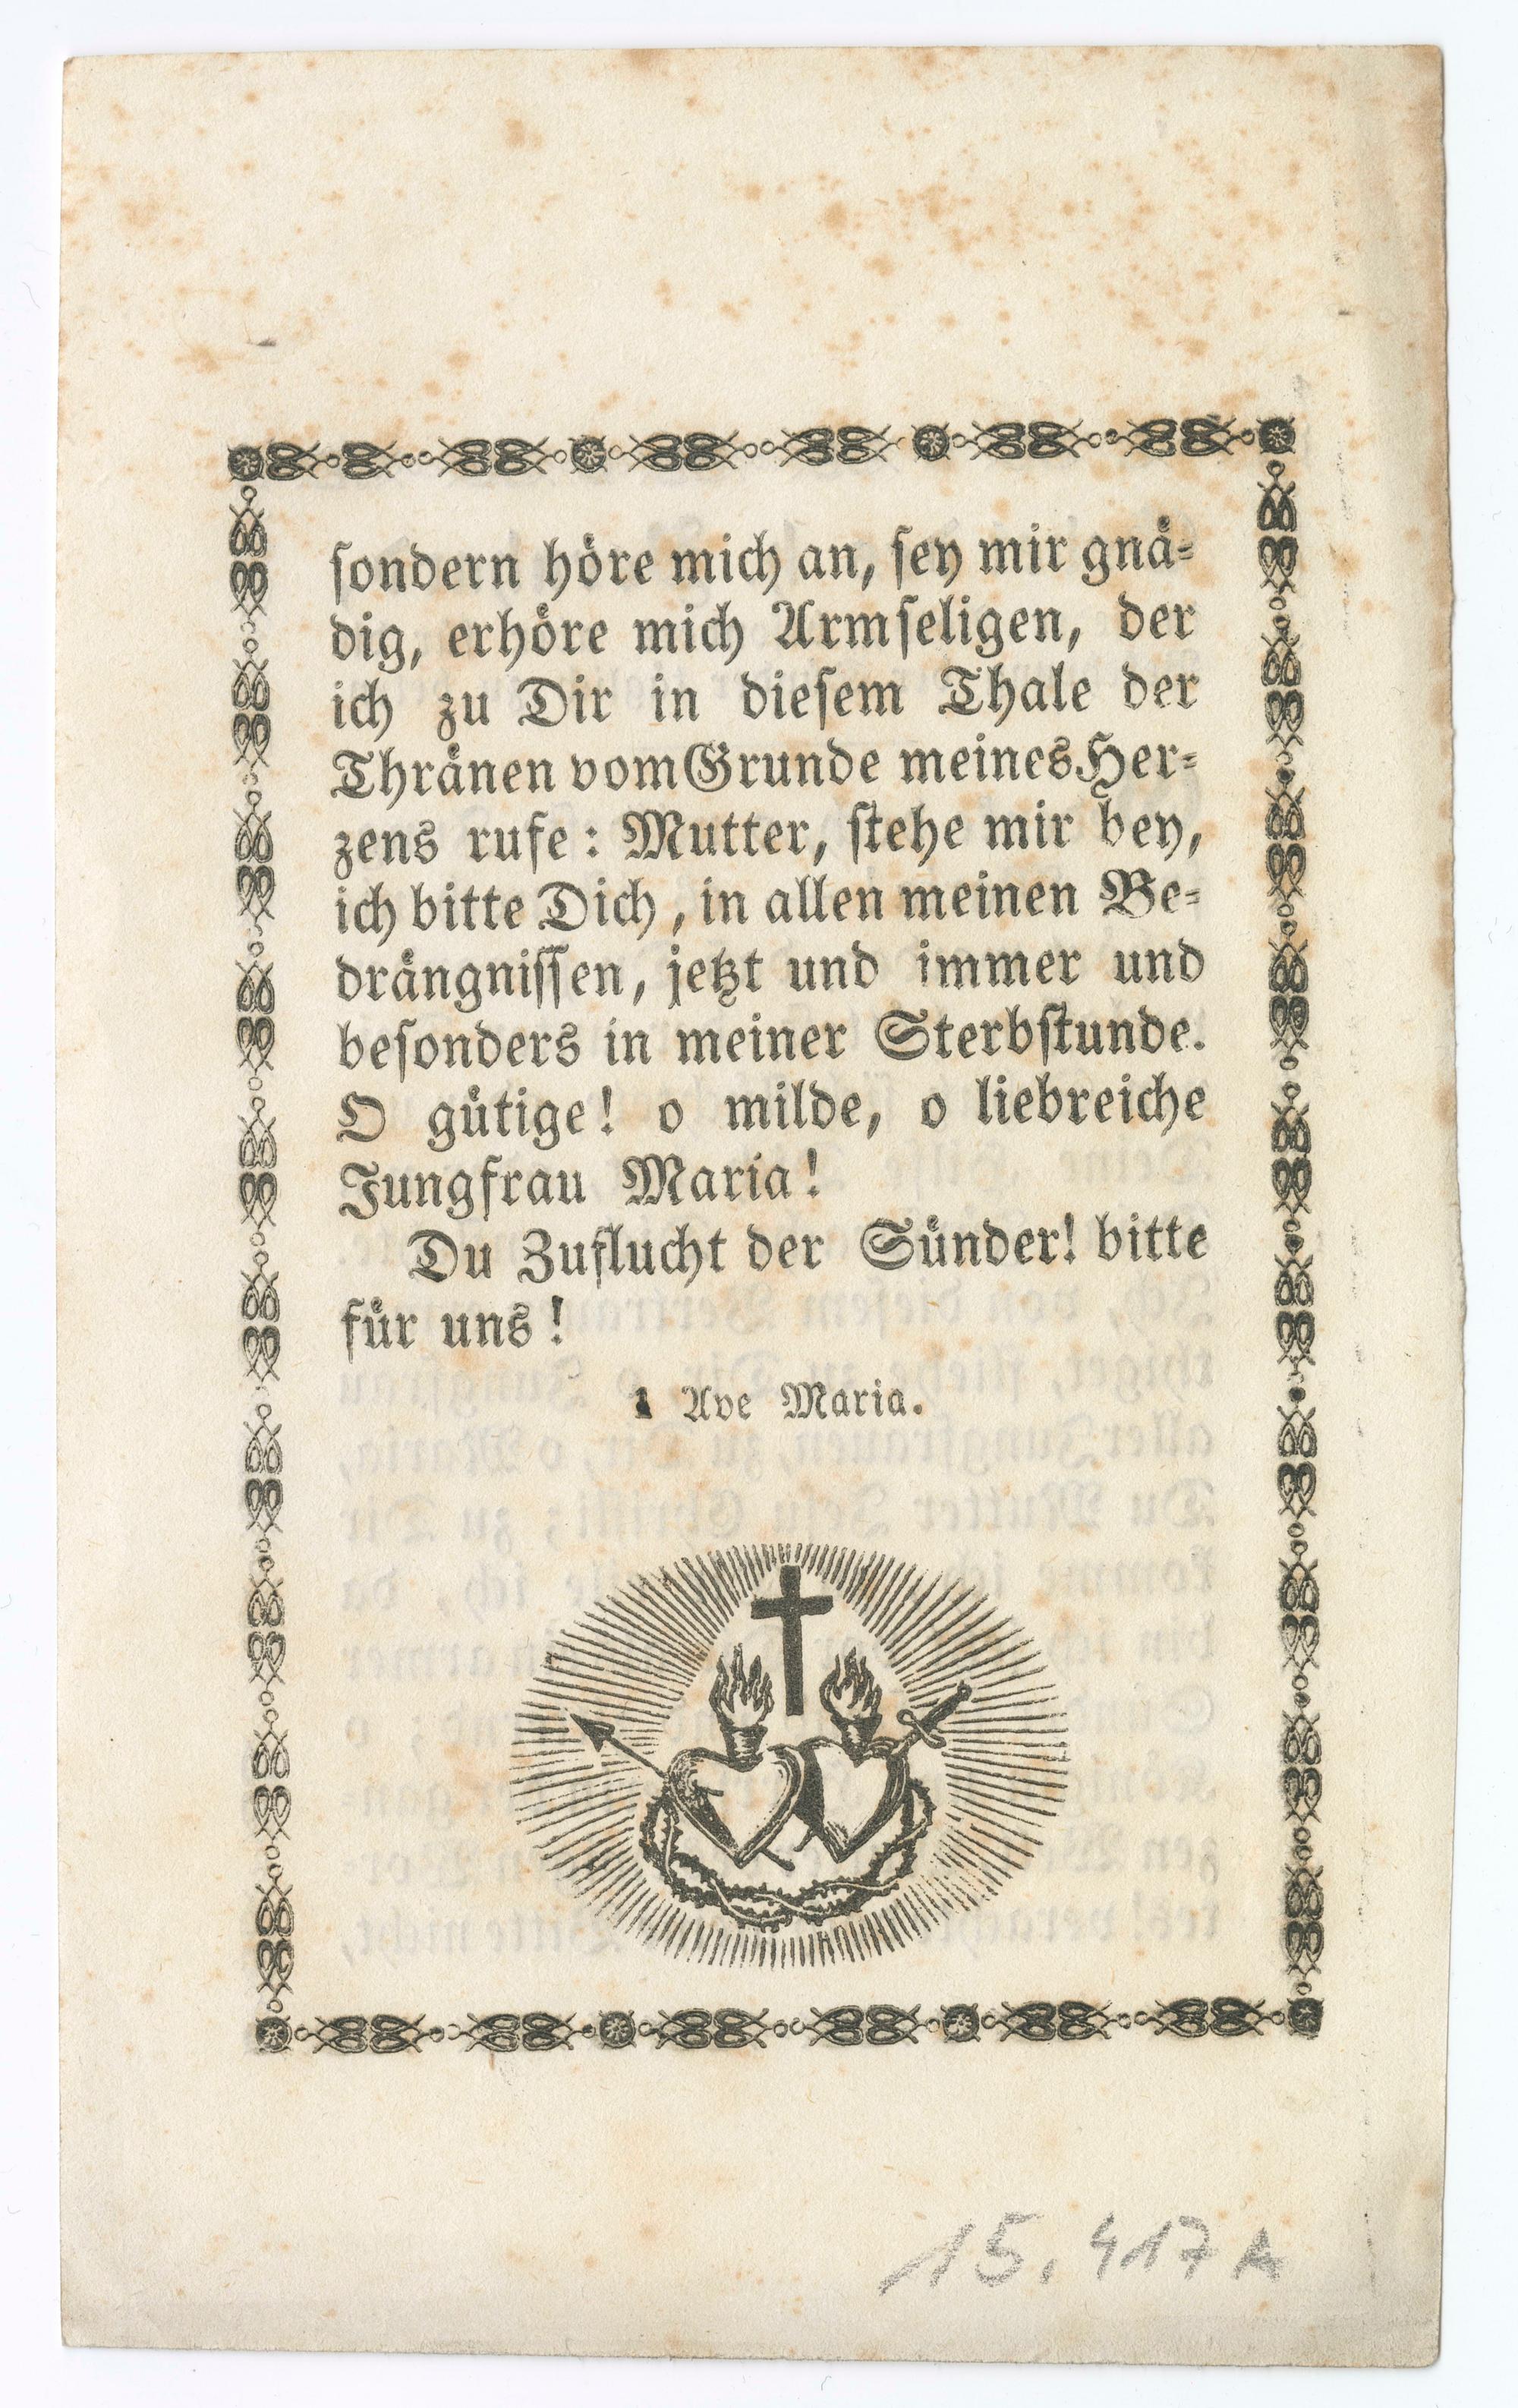 sondern höre mich an, sey mir gnä-
dig, erhöre mich Armseligen, der
ich zu Dir in diesem Thale der
Thränen vom Grunde meines Her-
zens rufe: Mutter, stehe mir bey,
ich bitte Dich, in allen meinen Be-
drängnissen, jetzt und immer und
besonders in meiner Sterbstunde.
O gütige! o milde, o liebreiche
Jungfrau Maria!
Du Zuflucht der Sünder! bitte
für uns!
1 Ave Maria.
15.417A